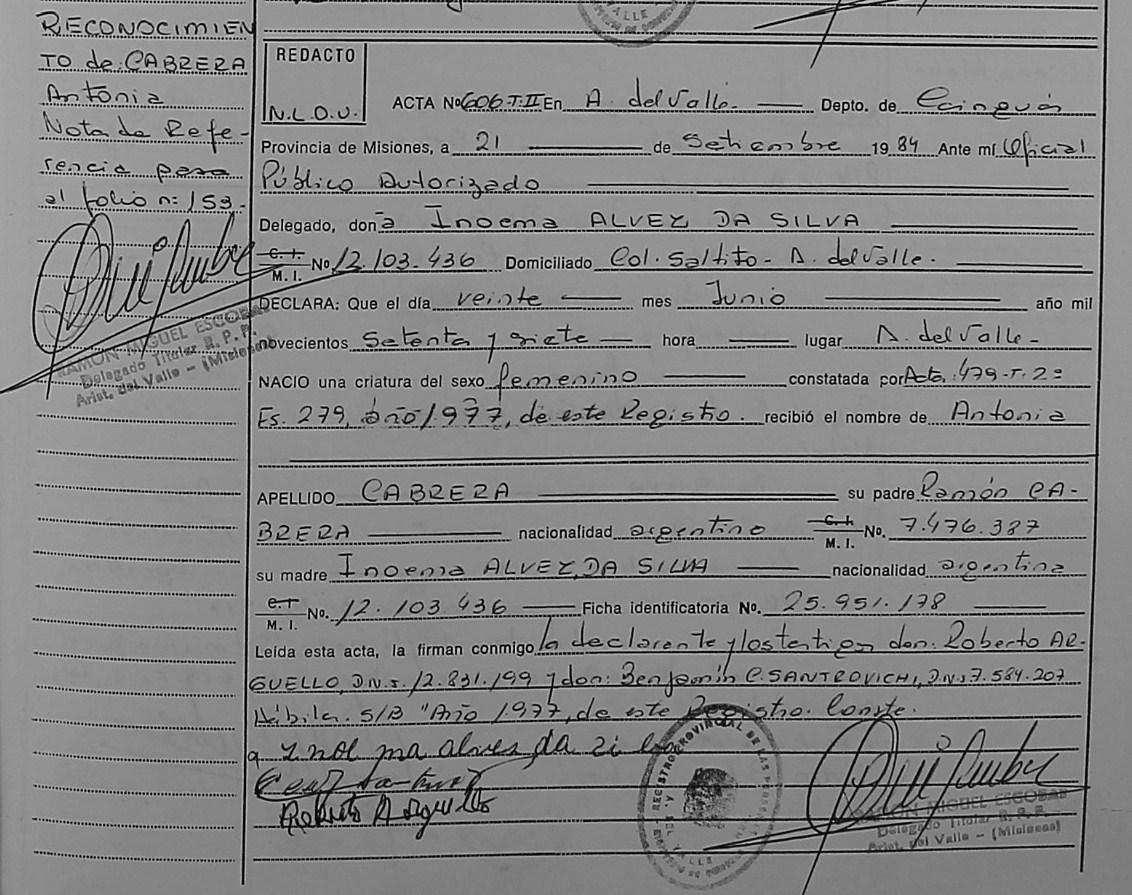 RECONOCIMIEN
TO de: CABRERA
Antonia
Nota de Refe-
rencia pasa
al folio n: 153.
RAMON MIGUEL ESCOBAR
Delegado Titular R. P. P.
Arist. del Valle – (Misiones)
REDACTO
N.L.O.U.
ACTA Nº 606-T-II En A. del Valle. Depto. de Cainguás
Provincia de Misiones, a 21 de Setiembre 19 84 Ante mí Oficial
Público Autorizado
Delegado, doña Inoema ALVEZ DA SILVA
C. I.
M. I. No 12.103.436 Domiciliado Col. Saltito - A. del Valle.
DECLARA: Que el día veinte mes Junio año mil
novecientos setenta y siete hora lugar A. del Valle -
NACIO una criatura del sexo femenino constatada por Acta: 479-T. 2º
Fs. 279, año 1977, de este Registro. recibió el nombre de Antonia
APELLIDO CABRERA su padre Ramón CA-
BRERA nacionalidad argentino C. I. M. I. No. 7.476.387
su madre Inoema ALVEZ DA SILVA nacionalidad argentina
C. I. M. I. No. 12.103.436 Ficha identificatoria No. 25.951.178
Leída esta acta, la firman conmigo la declarante y los testigos don: Roberto AR-
GUELLO, D.N.I. 12.831.199 y don: Benjamín C. SANTROVICHI, D.N.I 7.584.207
S/B "Año 1977, de este Registro. Conste.
Roberto Arguello
REGISTRO PROVINCIAL DE LAS PERSONAS
VALLE
RAMON MIGUEL ESCOBAR
Delegado Titular R. P. P.
Arist. del Valle – (Misiones)